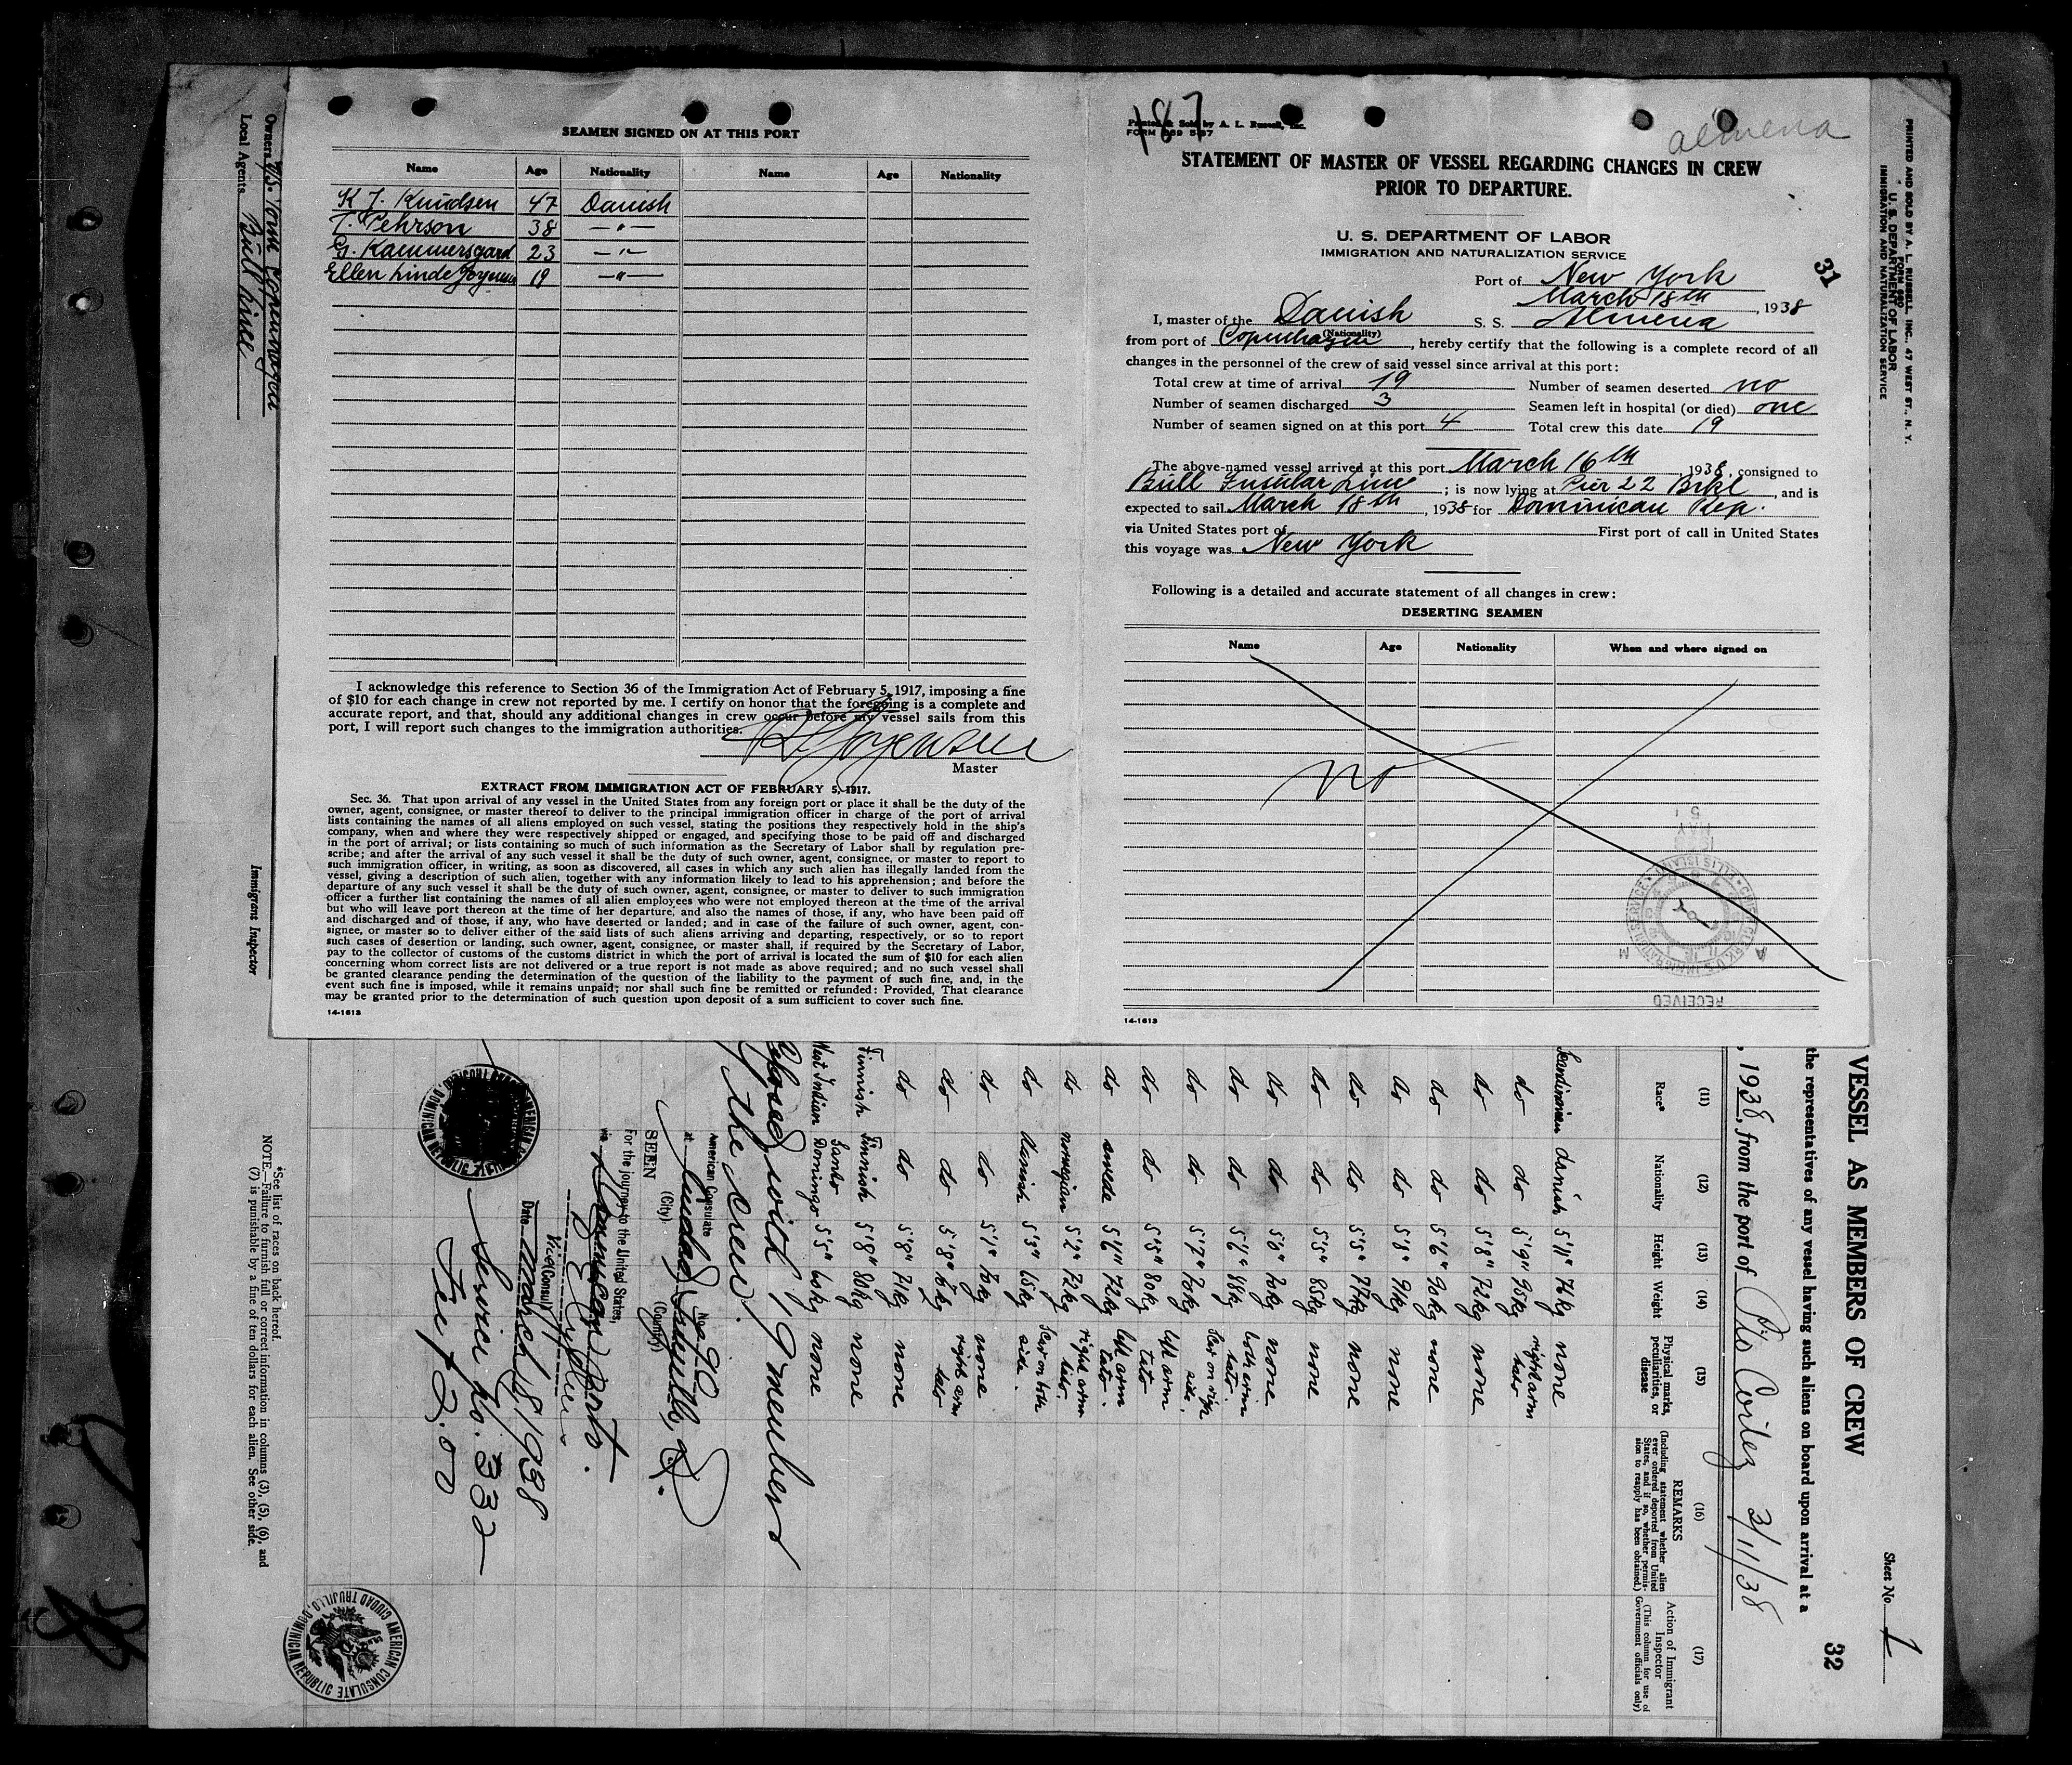 SEAMEN SIGNED ON AT THIS PORT
Name Age Nationality Name Age Nationality
K J. Knudsen 47 Danish
T. Pehrson 38 — " —
G. Kammersgard 23 — " —
Ellen Linde 19 — " —
I acknowledge this reference to Section 36 of the Immigration Act of February 5, 1917, imposing a fine
of $10 for each change in crew not reported by me. I certify on honor that the foregoing is a complete and
accurate report, and that, should any additional changes in crew occur before my vessel sails from this
port, I will report such changes to the immigration authorities.
Master
EXTRACT FROM IMMIGRATION ACT OF FEBRUARY 5, 1917.
Sec. 36. That upon arrival of any vessel in the United States from any foreign port or place it shall be the duty of the
owner, agent, consignee, or master thereof to deliver to the principal immigration officer in charge of the port of arrival
lists containing the names of all aliens employed on such vessel, stating the positions they respectively hold in the ship's
company, when and where they were respectively shipped or engaged, and specifying those to be paid off and discharged
in the port of arrival; or lists containing so much of such information as the Secretary of Labor shall by regulation pre-
scribe; and after the arrival of any such vessel it shall be the duty of such owner, agent, consignee, or master to report to
such immigration officer, in writing, as soon as discovered, all cases in which any such alien has illegally landed from the
vessel, giving a description of such alien, together with any information likely to lead to his apprehension; and before the
departure of any such vessel it shall be the duty of such owner, agent, consignee, or master to deliver to such immigration
officer a further list containing the names of all alien employees who were not employed thereon at the time of the arrival
but who will leave port thereon at the time of her departure, and also the names of those, if any, who have been paid off
and discharged and of those, if any, who have deserted or landed; and in case of the failure of such owner, agent, con-
signee, or master so to deliver either of the said lists of such aliens arriving and departing, respectively, or so to report
such cases of desertion or landing, such owner, agent, consignee, or master shall, if required by the Secretary of Labor,
pay to the collector of customs of the customs district in which the port of arrival is located the sum of $10 for each alien
concerning whom correct lists are not delivered or a true report is not made as above required; and no such vessel shall
be granted clearance pending the determination of the question of the liability to the payment of such fine, and, in the
event such fine is imposed, while it remains unpaid; nor shall such fine be remitted or refunded: Provided, That clearance
may be granted prior to the determination of such question upon deposit of a sum sufficient to cover such fine.
14-1613
187
Printed & Sold by A. L. Russell, Inc.
almena
STATEMENT OF MASTER OF VESSEL REGARDING CHANGES IN CREW
PRIOR TO DEPARTURE.
U. S. DEPARTMENT OF LABOR
IMMIGRATION AND NATURALIZATION SERVICE
31
Port of New York
March 18th, 1938
I, master of the Danish S. S. Almena
(Nationality)
from port of Copenhagen, hereby certify that the following is a complete record of all
changes in the personnel of the crew of said vessel since arrival at this port:
Total crew at time of arrival 19 Number of seamen deserted no
Number of seamen discharged 3 Seamen left in hospital (or died) one
Number of seamen signed on at this port 4 Total crew this date 19
The above-named vessel arrived at this port March 16th, 1938, consigned to
Bull Insular Line; is now lying at Pier 22 Brkl, and is
expected to sail March 18th, 1938 for Dominican Rep.
via United States port of First port of call in United States
this voyage was New York
Following is a detailed and accurate statement of all changes in crew:
DESERTING SEAMEN
Name Age Nationality When and where signed on
no
RECEIVED
14-1613
PRINTED AND SOLD BY A. L. RUSSELL, INC., 47 WEST ST., N. Y.
FORM 680
U. S. DEPARTMENT OF LABOR
IMMIGRATION AND NATURALIZATION SERVICE
Sheet No. 1
32
VESSEL AS MEMBERS OF CREW
the representatives of any vessel having such aliens on board upon arrival at a
, 1938, from the port of Pto Cortez 3/11/38
(11) (12) (13) (14) (15) (16) (17)
Race* Nationality Height Weight Physical marks, peculiarities, or disease
REMARKS (Including statement whether alien ever ordered deported from United States, and if so, whether permission to reapply has been obtained.)
Action of Immigrant Inspector (This column for use of Government officials only)
Scandinavian danish 5'11" 76 kg none
do do 5'9" 95 kg right arm tato
do do 5'8" 72 kg none
do do 5'6" 90 kg none
do do 5'8" 91 kg none
do do 5'5" 77 kg none
do do 5'5" 85 kg none
do do 5'6" 70 kg none
do do 5'6" 88 kg both arms tato
do do 5'7" 70 kg Scar on side.
do do 5'5" 80 kg left arm tato
do swede 5'6" 72 kg left arm tato.
do norwegian 5'2" 72 kg right arm tato.
do danish 5'3" 65 kg Scar on both side.
do do 5'1" 70 kg none
do do 5'8" right arm tato
do do 5'8" 71 kg none
Finnish Finnish 5'8" 80 kg none
West Indian Santo Domingo 5'5" 60 kg none
Closed with 19 members
of the crew.
American Consulate No. 90
at Ciudad Trujillo, D.R.
(City) (Country)
SEEN
For the journey to the United States,
via Dominican Ports.
Vice Consul
Date March 8, 1938
Service No. 332
Fee $2.00
AMERICAN CONSULATE CIUDAD TRUJILLO, DOMINICAN REPUBLIC
*See list of races on back hereof.
NOTE.—Failure to furnish full or correct information in columns (3), (5), (6), and
(7) is punishable by a fine of ten dollars for each alien. See other side.
Owners
Local Agents Bull Line
Immigrant Inspector